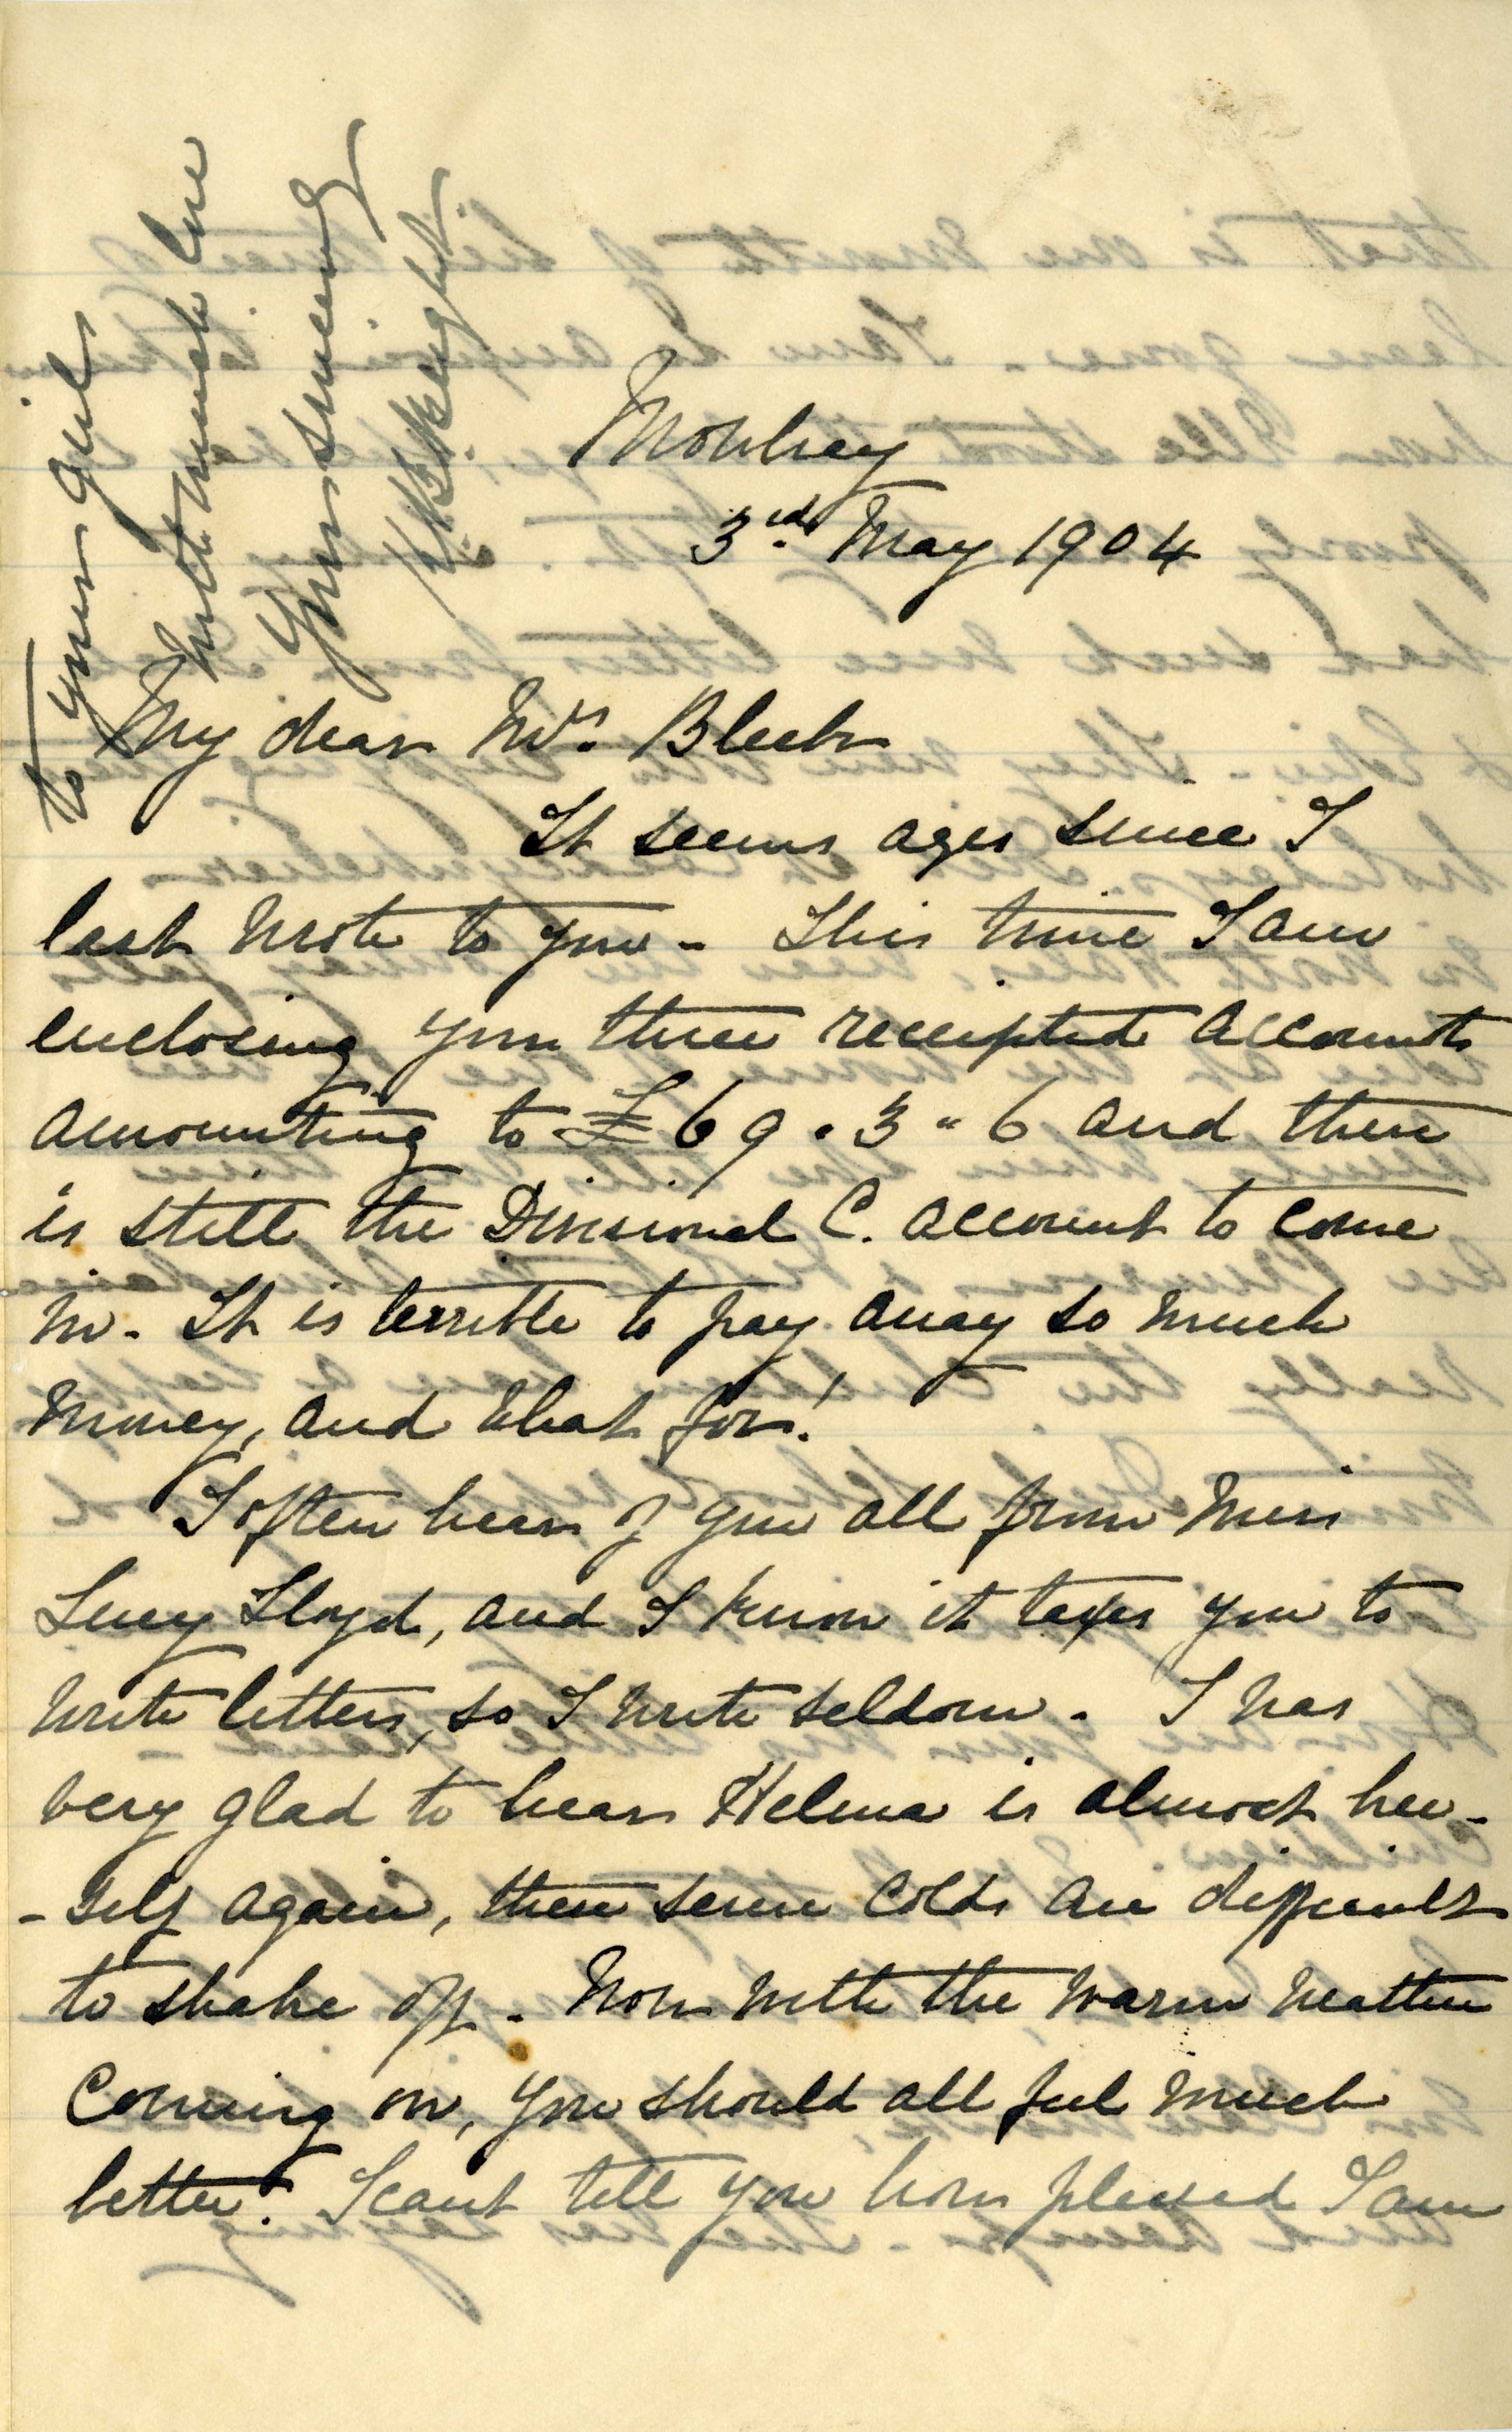 Mowbray
3rd. May 1904
My dear Mrs. Bleek
It seems ages since I
last wrote to you - This time I am
enclosing you three receipted accounts
amounting to £69.3"6 and there
is still the Divisional C. account to come
in. It is terrible to pay away so much
money, and what for!
I often hear of you all from Miss
Lucy Lloyd, and I know it taxes you to
write letters, so I write seldom. I was
very glad to hear Helma is almost her-
-self again, these severe colds are difficult
to shake off. Now with the warm weather
coming on, you should all feel much
better. I cant tell you how pleased I am
to your girls
with much love
Yours sincerely